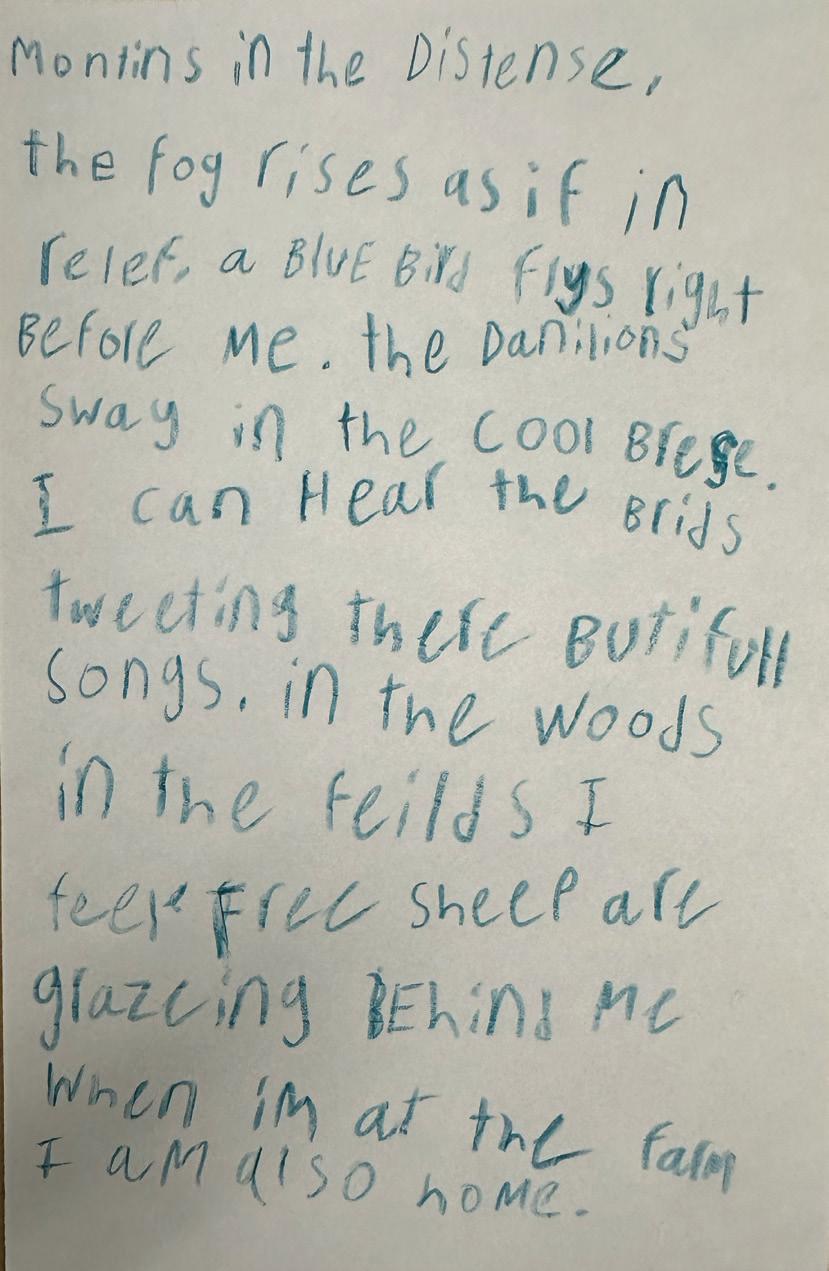 Montins in the Distense,
the fog rises as if in
relef. a BlUE Bird flys right
Before Me. the Danilions
Sway in the cool Brese.
I can Hear the Brids
tweeting there Butifull
songs. in the woods
in the feilds I
feel Free sheep are
grazeing BEhind Me
When im at the farm
I aM also home.